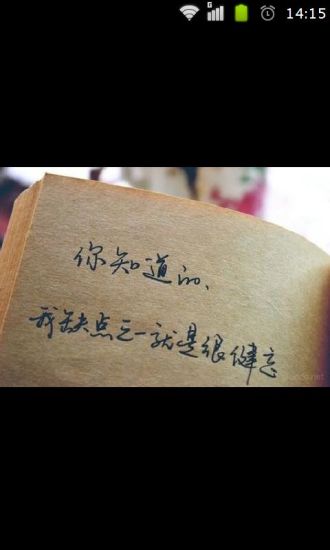 14:15
你知道的、
我缺点之一就是很健忘